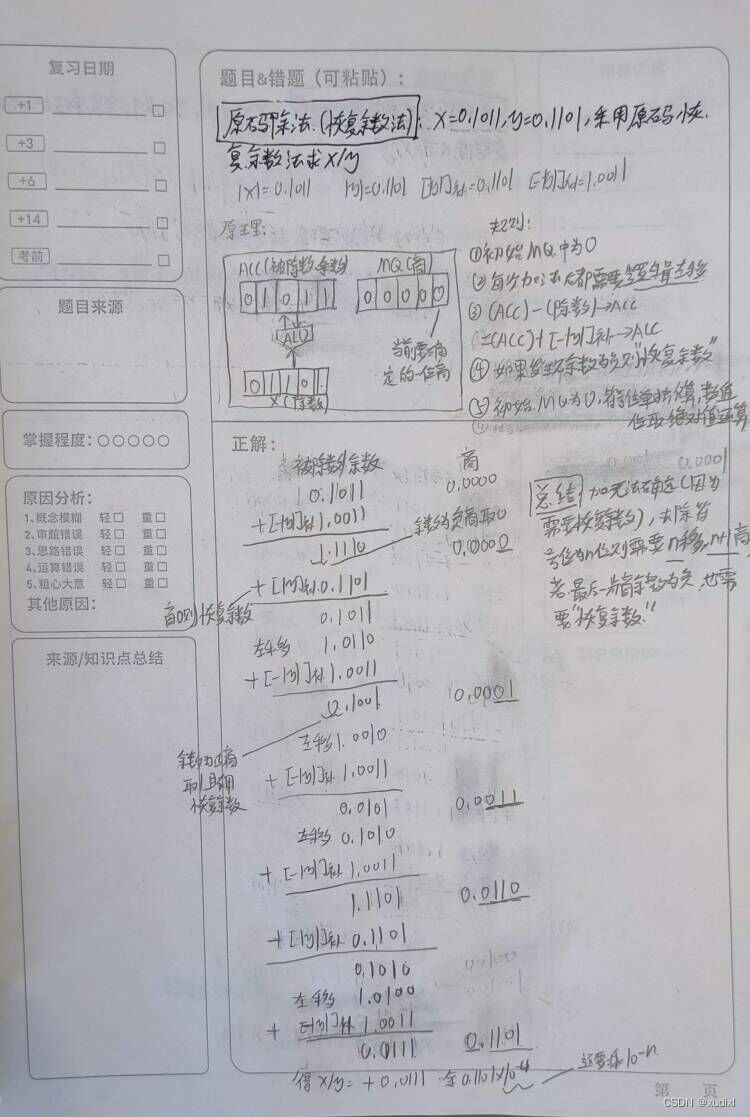 复习日期
+1
+3
+6
+14
考前
题目来源
掌握程度：○○○○○
原因分析：
1、概念模糊 轻□ 重□
2、审题错误 轻□ 重□
3、思路错误 轻□ 重□
4、运算错误 轻□ 重□
5、粗心大意 轻□ 重□
其他原因：
来源/知识点总结
题目&错题（可粘贴）：
原码除法（恢复余数法）：x=0.1011, y=0.1101, 采用原码恢
复余数法求x/y
|x|=0.1011 |y|=0.1101 [|y|]补=0.1101 [-|y|]补=1.0011
原理：
ACC(被除数、余数) MQ(商)
0 1 0 1 1 0 0 0 0 0
ALU
0 1 1 0 1
X(除数)
当前要确
定的一位商
规则：
①初始MQ中为0
③(ACC)-(除数)→ACC
(ACC)+[-|y|]补→ACC
④如果发现余数为负则"恢复余数"
⑤初始MQ为0, 符号位单独计算, 数值
位取绝对值运算
正解：
被除数/余数 商
0.1011 0.0000
+[-|y|]补 1.0011
余数为负商取0
1.1110 0.0000
+[|y|]补 0.1101
商0则恢复余数
0.1011
左移 1.0110
+[-|y|]补 1.0011
0.1001 0.0001
左移 1.0010
余数为正商
取1且不用
恢复余数
+[-|y|]补 1.0011
0.0101 0.0011
左移 0.1010
+[-|y|]补 1.0011
1.1101 0.0110
+[|y|]补 0.1101
0.1010
左移 1.0100
+[-|y|]补 1.0011
0.0111 0.1101
得 x/y= +0.0111 余0.1101×10⁻⁴
还要乘10⁻ⁿ
0.0001
总结 加无法确定(因为
需要恢复余数), 去除符
号位为n位则需要n移, n+1商
若最后一步商余数为负, 也需
要"恢复余数."
第 页
CSDN @xudixl